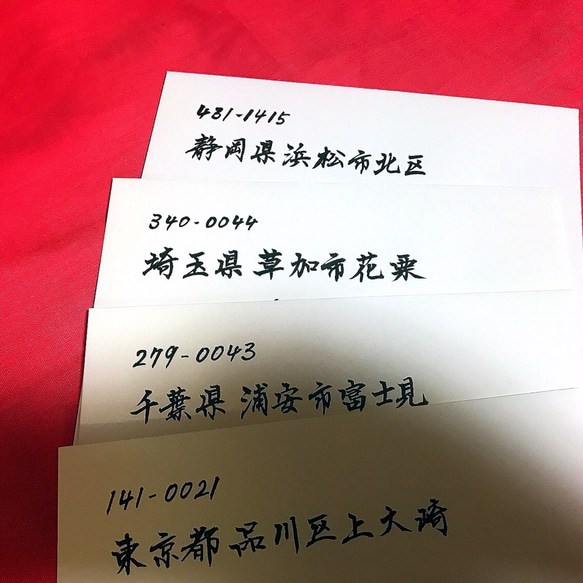 431-1415
静岡県浜松市北区
340-0044
埼玉県草加市花栗
279-0043
千葉県浦安市富士見
141-0021
東京都品川区上大崎